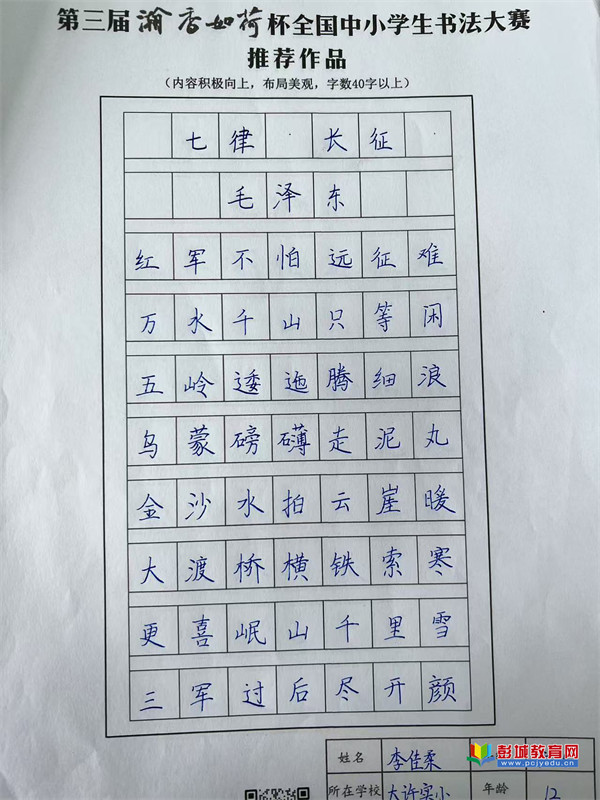 第三届瀚香如荷杯全国中小学生书法大赛
推荐作品
（内容积极向上，布局美观，字数40字以上）
七律 长征
毛泽东
红军不怕远征难
万水千山只等闲
五岭逶迤腾细浪
乌蒙磅礴走泥丸
金沙水拍云崖暖
大渡桥横铁索寒
更喜岷山千里雪
三军过后尽开颜
姓名 李佳柔
所在学校 大许实小 年龄 12
彭城教育网
www.pcjyedu.cn